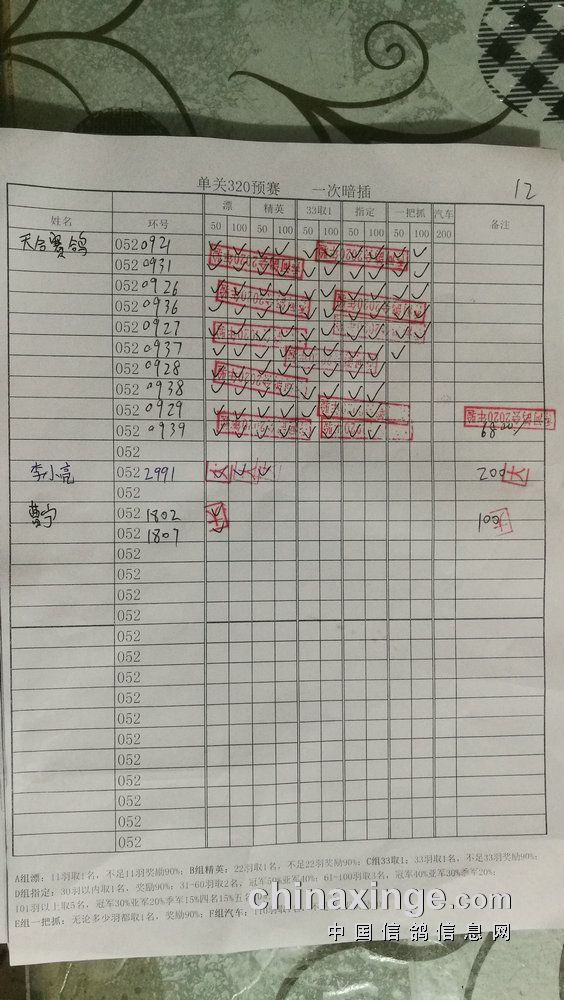 单关320预赛 一次暗插 12
姓名 环号 漂 精英 33取1 指定 一把抓 汽车 备注
50 100 50 100 50 100 50 100 50 100 200
天合赛鸽 052 0921
052 0931
052 0926
052 0936
052 0927
052 0937
052 0928
052 0938
052 0929
052 0939 6800
052
李小亮 052 2991 200
052
曹宁 052 1802 100
052 1807
052
052
052
052
052
052
052
052
052
052
052
052
052
052
052
A组漂：11羽取1名，不足11羽奖励90%；B组精英：22羽取1名，不足22羽奖励90%；C组33取1：33羽取1名，不足33羽奖励90%；
D组指定：30羽以内取1名，奖励90%；31-60羽取2名，冠军50%亚军40%；61-100羽取3名，冠军40%亚军30%季军20%；
101羽以上取5名，冠军30%亚军20%季军15%四名15%五名
E组一把抓：无论多少羽都取1名，奖励90%；F组汽车：
chinaxinge.com
中国信鸽信息网